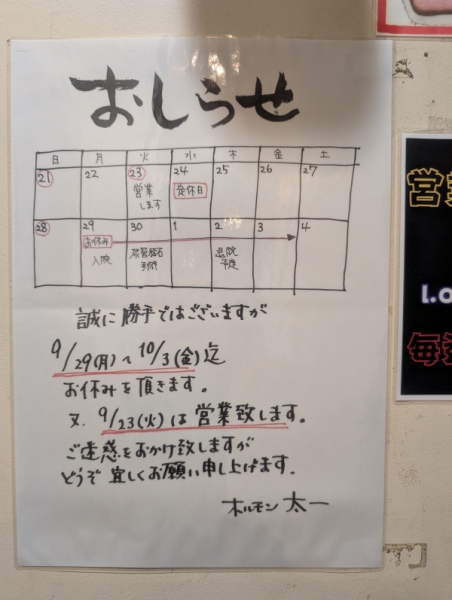 おしらせ
日 月 火 水 木 金 土
21 22 23 24 25 26 27
営業します 定休日
28 29 30 1 2 3 4
お休み
入院 尿管結石手術 退院予定
誠に勝手ではございますが
9/29(月)〜10/3(金)迄
お休みを頂きます。
又、9/23(火)は営業致します。
ご迷惑をおかけ致しますが
どうぞ宜しくお願い申し上げます。
ホルモン 太一
営業
l.o
毎